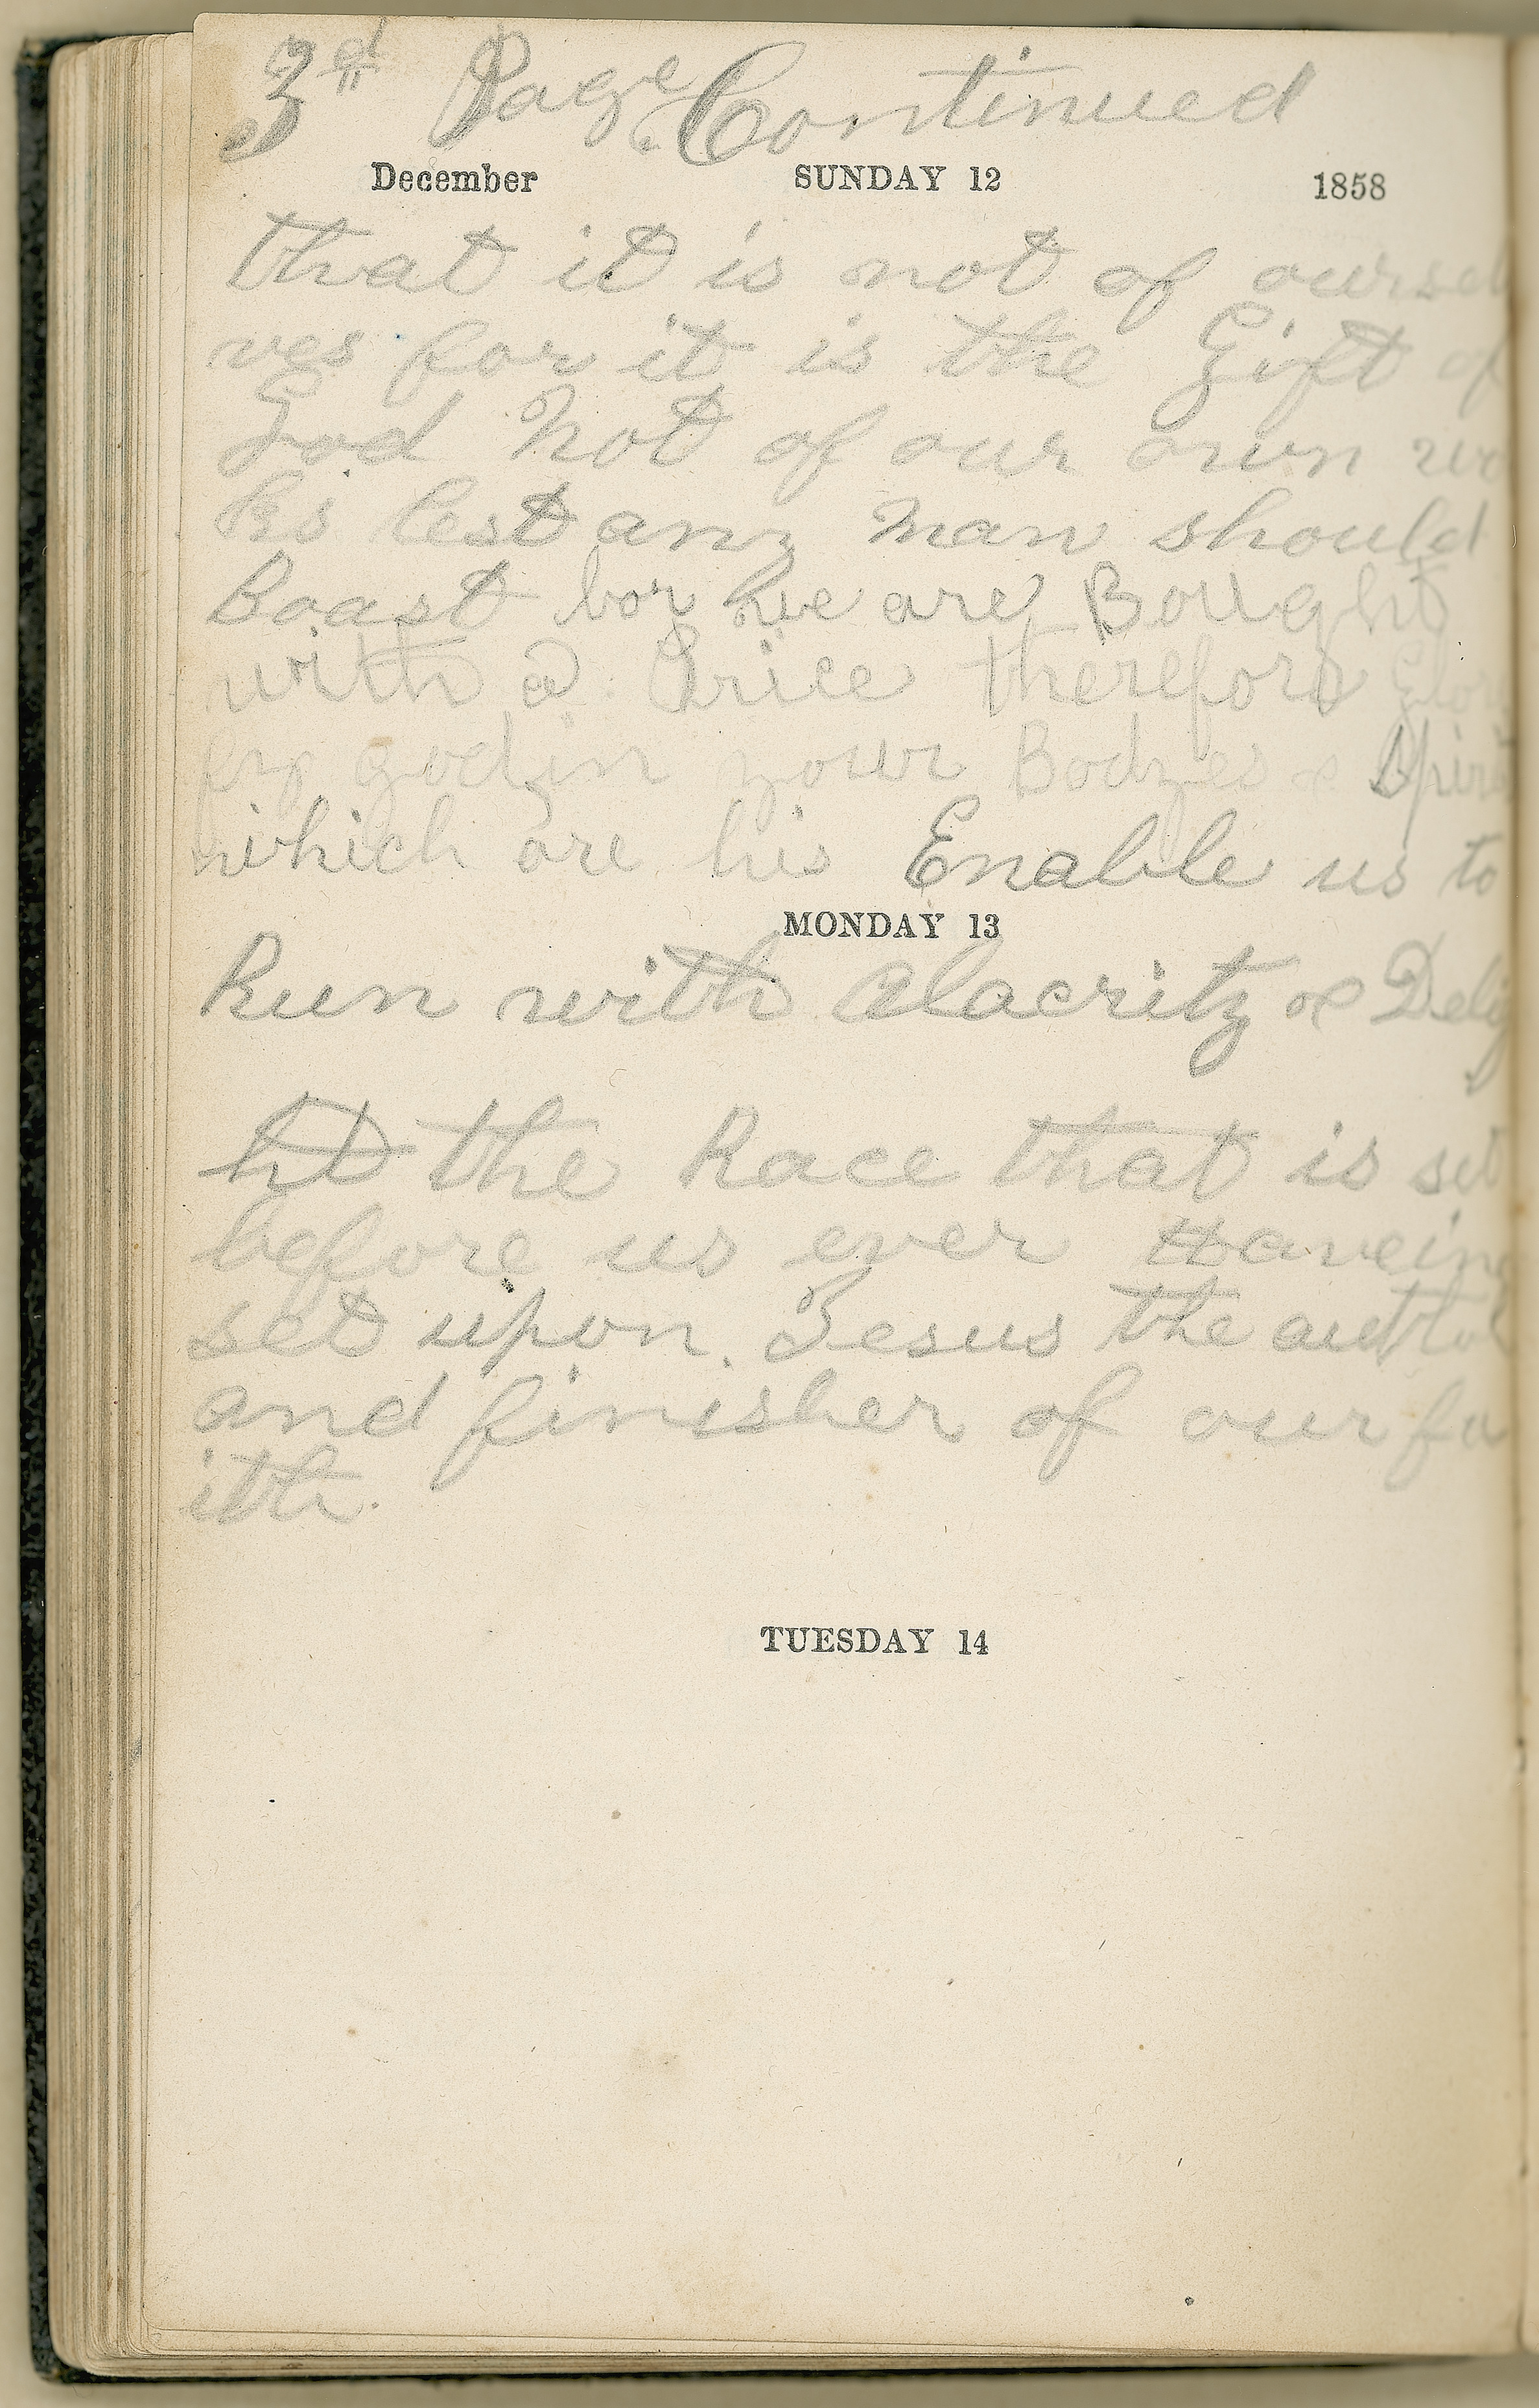 3d Page Continued
December SUNDAY 12 1858
that it is not of oursel
ves for it is the Gift of
God Not of our own wo
ks lest any man should
Boast for we are Bought
with a Price therefore Glor
fy god in your Bodyes & Spirit
which are his Enable us to
MONDAY 13
Run with alacrity & Delig
ht the Race that is set
before us ever Haveing
set upon Jesus the author
and finisher of our fa
ith.
TUESDAY 14